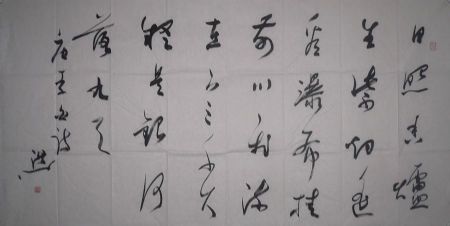 日照香爐
生紫烟遥
看瀑布挂
前川飛流
直下三千尺
疑是銀河
落九天
唐李白詩